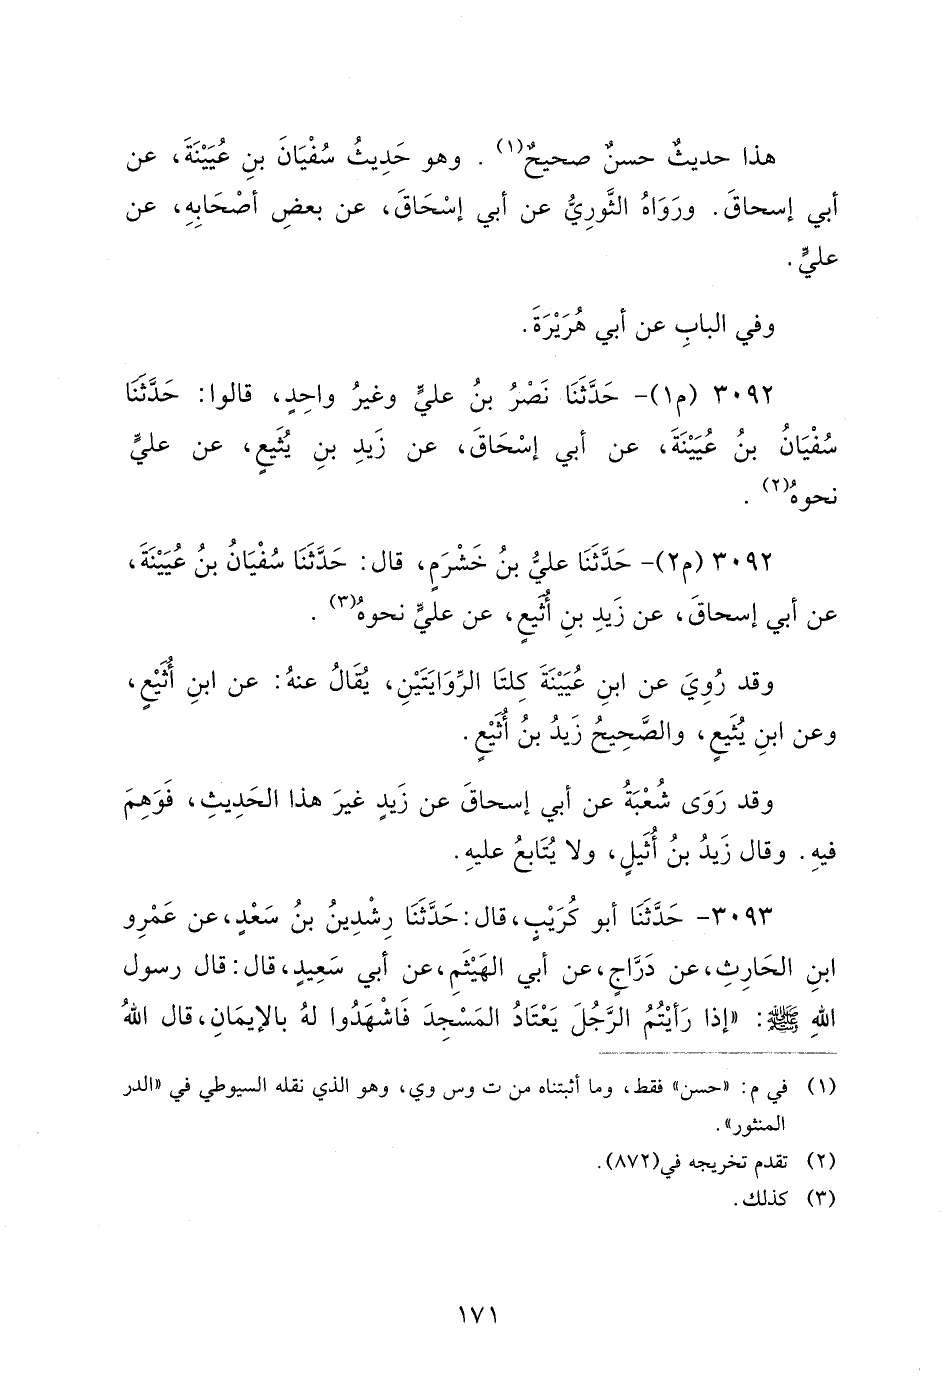 هذا حديثٌ حسنٌ صحيحٌ(١) . وهو حَدِيثُ سُفْيَانَ بنِ عُيَيْنَةَ، عن
أبي إسحاقَ. ورَوَاهُ الثَّورِيُّ عن أبي إسْحَاقَ، عن بعضِ أصْحَابِهِ، عن
عليٍّ.
وفي البابِ عن أبي هُرَيْرَةَ.
٣٠٩٢ (م١)- حَدَّثَنَا نَصْرُ بنُ عليٍّ وغيرُ واحِدٍ، قالوا: حَدَّثَنَا
سُفْيَانُ بنُ عُيَيْنَةَ، عن أبي إسْحَاقَ، عن زَيدِ بنِ يُثَيعٍ، عن عليٍّ
نحوهُ(٢) .
٣٠٩٢ (م٢)- حَدَّثَنَا عليُّ بنُ خَشْرَمٍ، قال: حَدَّثَنَا سُفْيَانُ بنُ عُيَيْنَةَ،
عن أبي إسحاقَ، عن زَيدِ بنِ أُثَيعٍ، عن عليٍّ نحوهُ(٣) .
وقد رُوِيَ عن ابنِ عُيَيْنَةَ كِلتَا الرِّوَايَتَيْنِ، يُقَالُ عنهُ: عن ابنِ أُثَيْعٍ،
وعن ابنِ يُثَيعٍ، والصَّحِيحُ زَيدُ بنُ أُثَيْعٍ.
وقد رَوَى شُعْبَةُ عن أبي إسحاقَ عن زَيدٍ غيرَ هذا الحَدِيثِ، فَوَهِمَ
فيهِ. وقال زَيدُ بنُ أُثَيلٍ، ولا يُتَابعُ عليهِ.
٣٠٩٣- حَدَّثَنَا أبو كُرَيْبٍ، قال: حَدَّثَنَا رِشْدِينُ بنُ سَعْدٍ، عن عَمْرِو
ابنِ الحَارِثِ، عن دَرَّاجٍ، عن أبي الهَيْثَمِ، عن أبي سَعِيدٍ، قال: قال رسول
اللهِ ﷺ: «إذا رَأيْتُمُ الرَّجُلَ يَعْتَادُ المَسْجِدَ فَاشْهَدُوا لهُ بالإيمَانِ، قال اللهُ
(١) في م: «حسن» فقط، وما أثبتناه من ت وس وي، وهو الذي نقله السيوطي في «الدر
المنثور».
(٢) تقدم تخريجه في (٨٧٢).
(٣) كذلك.
١٧١